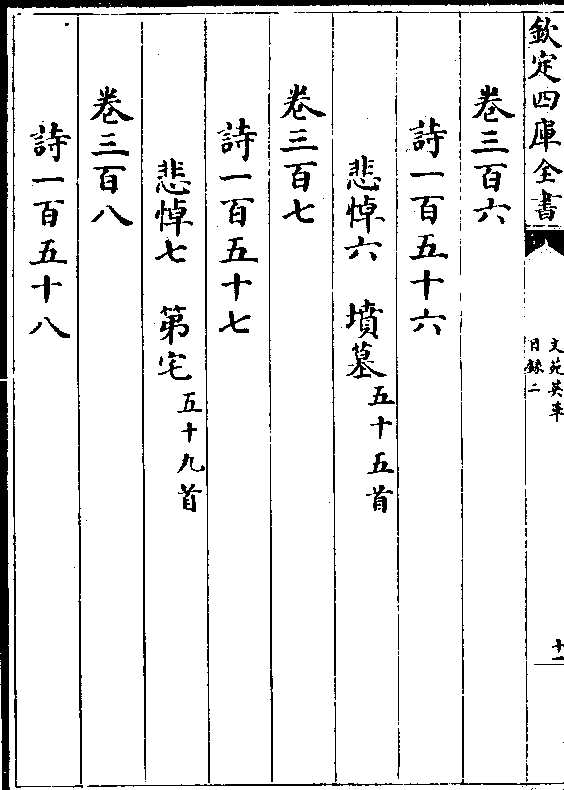 欽定四庫全書
文苑英華
目録二
十一
卷三百六
詩一百五十六
悲悼六　墳墓五十五首
卷三百七
詩一百五十七
悲悼七　第宅五十九首
卷三百八
詩一百五十八